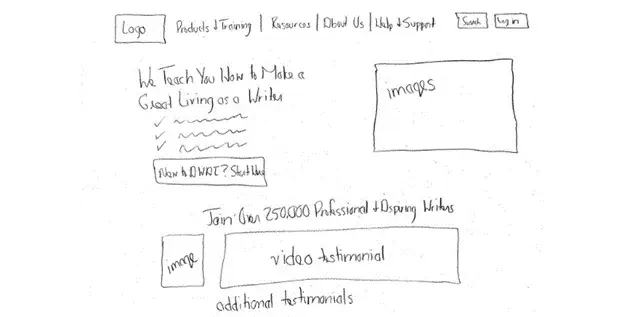 Logo Products & Training | Resources | About Us | Help & Support Search Log in
We Teach You How to Make a
Great Living as a Writer
images
New to AWAI? Start Here
Join Over 250,000 Professional & Aspiring Writers
image
video testimonial
additional testimonials